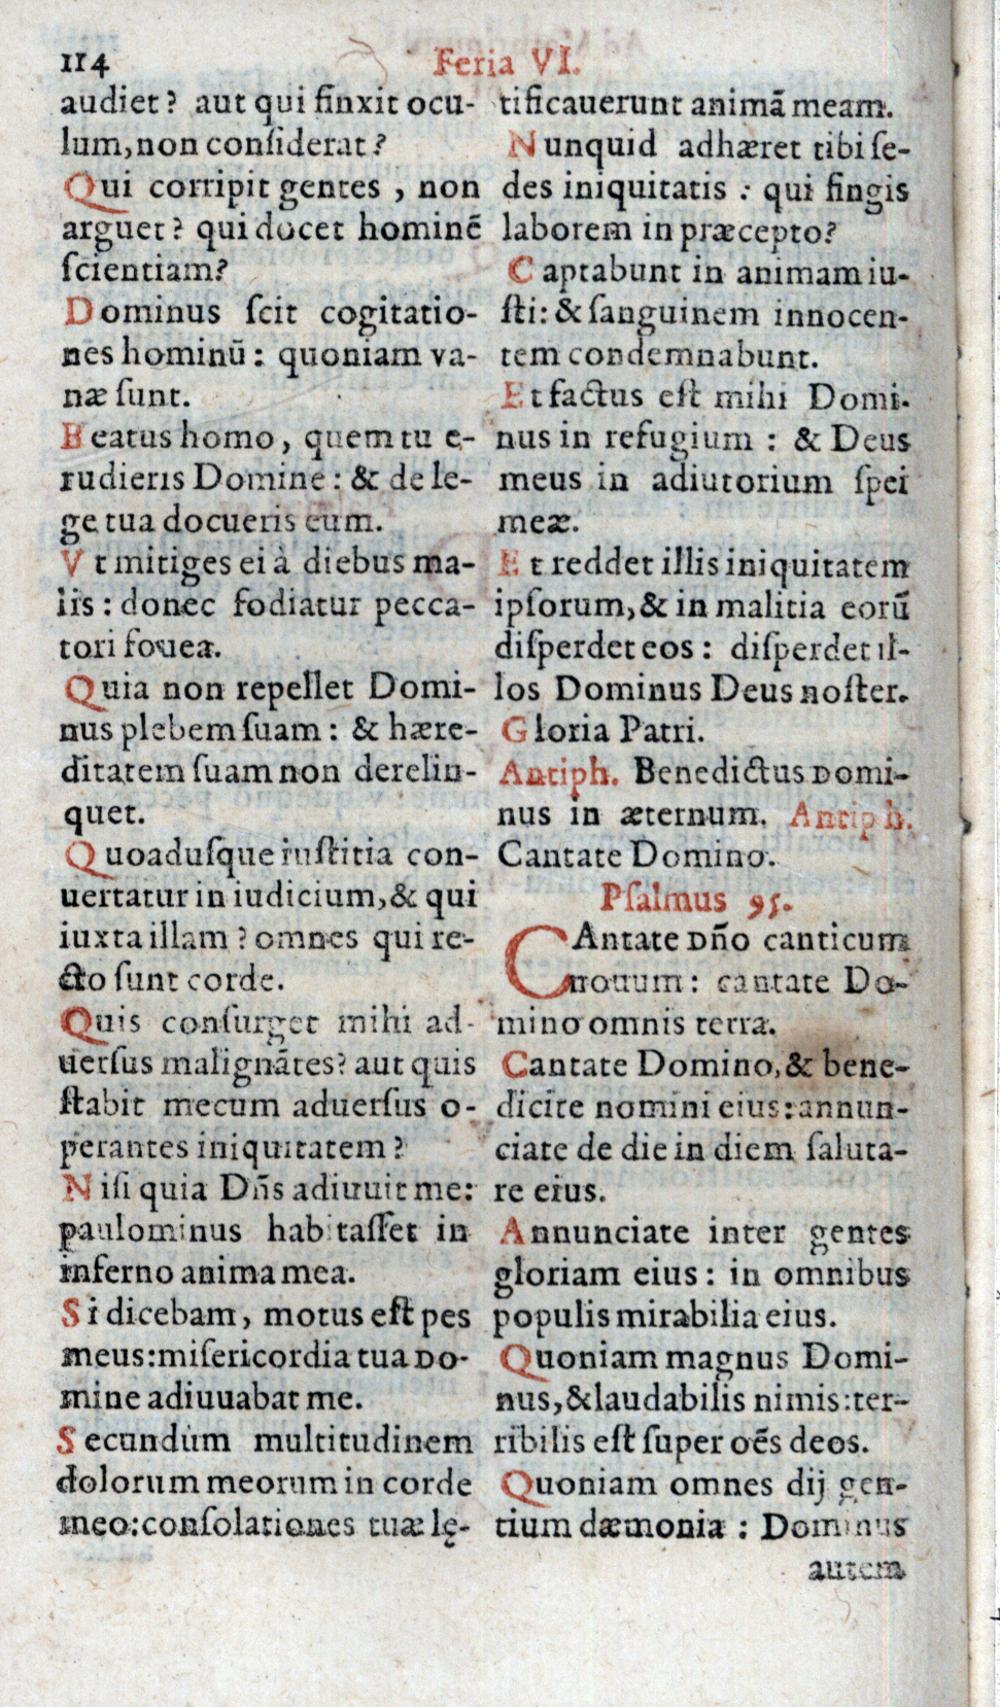 114
Feria VI.
audiet? aut qui finxit ocu-
lum, non conſiderat?
Qui corripit gentes, non
arguet? qui docet hominē
ſcientiam?
Dominus ſcit cogitatio-
nes hominū: quoniam va-
næ ſunt.
Beatus homo, quem tu e-
rudieris Domine: & de le-
ge tua docueris eum.
Vt mitiges ei à diebus ma-
lis: donec fodiatur pecca-
tori fouea.
Quia non repellet Domi-
nus plebem ſuam: & hære-
ditatem ſuam non derelin-
quet.
Quoaduſque iuſtitia con-
uertatur in iudicium, & qui
iuxta illam? omnes qui re-
cto ſunt corde.
Quis conſurget mihi ad-
uerſus malignātes? aut quis
ſtabit mecum aduerſus o-
perantes iniquitatem?
Niſi quia Dn̄s adiuuit me:
paulominus habitaſſet in
inferno anima mea.
Si dicebam, motus eſt pes
meus: miſericordia tua Do-
mine adiuuabat me.
Secundùm multitudinem
dolorum meorum in corde
meo: conſolationes tuæ lę-
tificauerunt animā meam.
Nunquid adhæret tibi ſe-
des iniquitatis: qui fingis
laborem in præcepto?
Captabunt in animam iu-
ſti: & ſanguinem innocen-
tem condemnabunt.
Et factus eſt mihi Domi-
nus in refugium: & Deus
meus in adiutorium ſpei
meæ.
Et reddet illis iniquitatem
ipſorum, & in malitia eorū
diſperdet eos: diſperdet il-
los Dominus Deus noſter.
Gloria Patri.
Antiph. Benedictus Domi-
nus in æternum. Antiph.
Cantate Domino.
Pſalmus 95.
CAntate Dño canticum
nouum: cantate Do-
mino omnis terra.
Cantate Domino, & bene-
dicite nomini eius: annun-
ciate de die in diem ſaluta-
re eius.
Annunciate inter gentes
gloriam eius: in omnibus
populis mirabilia eius.
Quoniam magnus Domi-
nus, & laudabilis nimis: ter-
ribilis eſt ſuper oēs deos.
Quoniam omnes dij gen-
tium dæmonia: Dominus
autem